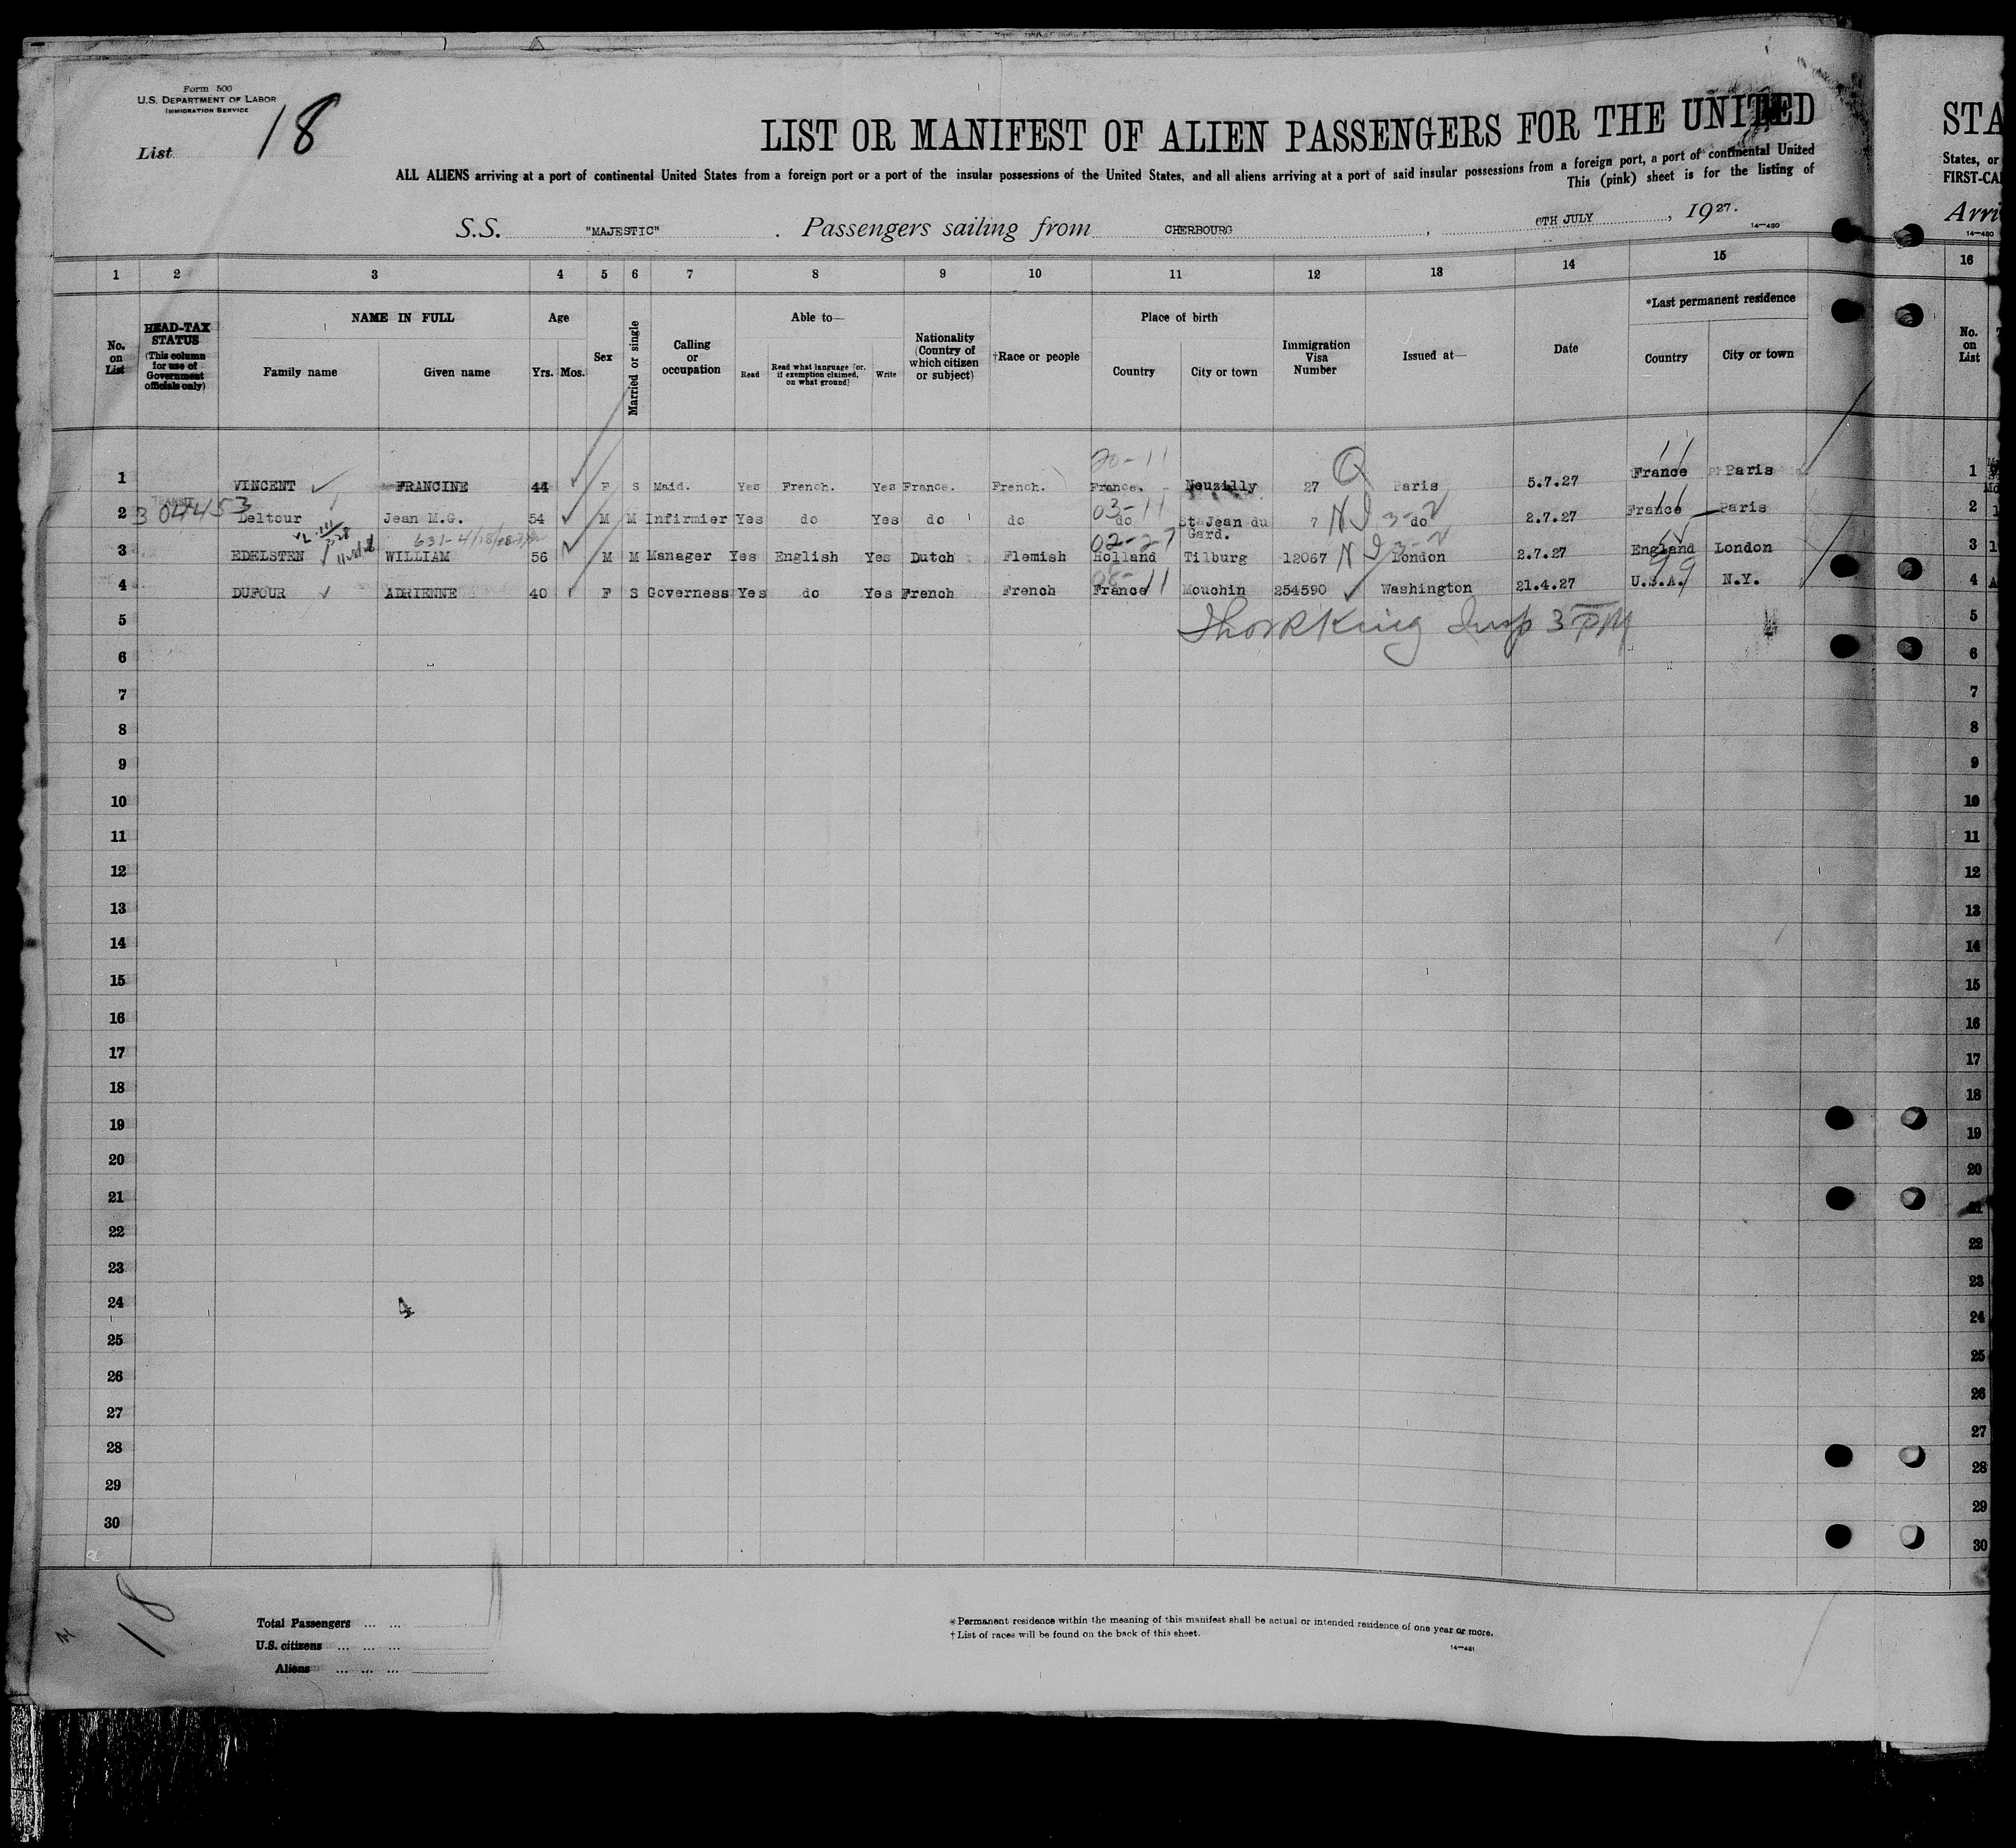 Form 500
U.S. DEPARTMENT OF LABOR
IMMIGRATION SERVICE
List 18
LIST OR MANIFEST OF ALIEN PASSENGERS FOR THE UNITED
ALL ALIENS arriving at a port of continental United States from a foreign port or a port of the insular possessions of the United States, and all aliens arriving at a port of said insular possessions from a foreign port, a port of continental United
This (pink) sheet is for the listing of
S.S. "MAJESTIC". Passengers sailing from CHERBOURG, 6TH JULY, 1927.
14—430
STA
States, or
FIRST-CA
Arri
14—430
1 2 3 4 5 6 7 8 9 10 11 12 13 14 15 16
No. on List
HEAD-TAX STATUS (This column for use of Government officials only)
NAME IN FULL
Family name
Given name
Age
Yrs. Mos.
Sex
Married or single
Calling or occupation
Able to—
Read
Read what language [or, if exemption claimed, on what ground]
Write
Nationality (Country of which citizen or subject)
†Race or people
Place of birth
Country
City or town
Immigration Visa Number
Issued at—
Date
*Last permanent residence
Country
City or town
No. on List
20-11
1 VINCENT FRANCINE 44 F S Maid. Yes French. Yes France. French. France. Neuzilly 27 Q Paris 5.7.27 France Paris 1
TRANSIT
304453
03-11
2 Deltour Jean M.G. 54 M M Infirmier Yes do Yes do do do St Jean du Gard. 7 NI 3-2 do 2.7.27 France Paris 2
02-27
3 EDELSTEN WILLIAM 56 M M Manager Yes English Yes Dutch Flemish Holland Tilburg 12067 NI 3-2 London 2.7.27 England London 3
08-11
99
4 DUFOUR ADRIENNE 40 F S Governess Yes do Yes French French France Mouchin 254590 Washington 21.4.27 U.S.A. N.Y. 4
5 King Insp 3 PM 5
6 6
7 7
8 8
9 9
10 10
11 11
12 12
13 13
14 14
15 15
16 16
17 17
18 18
19 19
20 20
21 21
22 22
23 23
24 4 24
25 25
26 26
27 27
28 28
29 29
30 30
18
Total Passengers ... ...
U.S. citizens ... ... ...
Aliens ... ... ...
* Permanent residence within the meaning of this manifest shall be actual or intended residence of one year or more.
† List of races will be found on the back of this sheet.
14—431